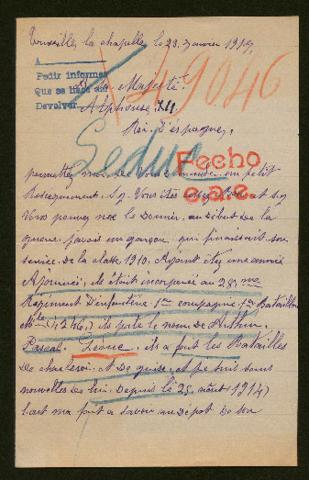 la chapelle le 23 Janvier 1915,
A
Pedir informes
Que se
Devolver
49046
A Sa Majesté
Alphonse XIII
Roi D'espagne,
Leduc
Fecho
e.a.e.
permettez moi de Vous demander un petit
Renseignement. Si Vous êtes et si
Vous pouvez me le Donner, au début de la
guerre j'avais un garçon, qui finissait son
service. De la classe 1910. Ayant étez une année
Ajournée, ils était incorporée au 28me
Régiment D'infanterie 1re compagnie 1er Bataillon
Mle (4246,) ils porte le nom de Arthur
Pascal Leduc. ils a fait les Batailles
De charleroi. et De guise, et je suis sans
nouvelles de lui. Depuis le 25 août (1914)
l'ont ma fait a savoir au Dépot de son